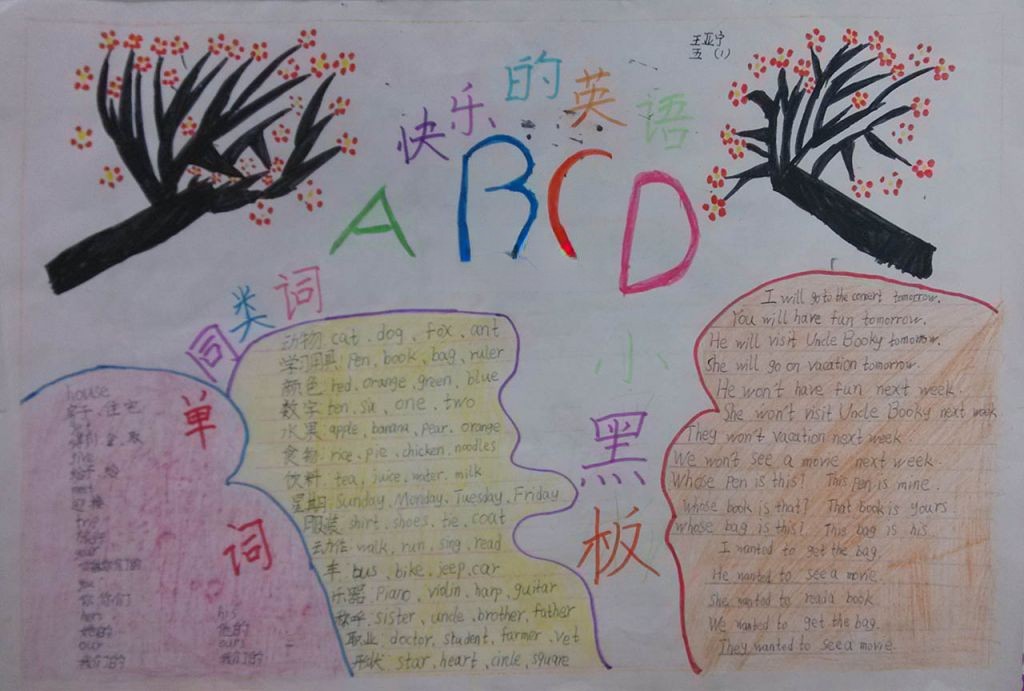 王亚宁
五(1)
快乐的英语
ABCD
同类词
动物: cat、dog、fox、ant
学习用具: Pen、book、bag、ruler
颜色: red、orange、green、blue
数字: ten、six、one、two
水果: apple、banana、pear、orange
食物: rice、pie、chicken、noodles
饮料: tea、juice、water、milk
星期: Sunday、Monday、Tuesday、Friday
服装: shirt、shoes、tie、coat
动作: walk、run、sing、read
车: bus、bike、jeep、car
乐器: Piano、violin、harp、guitar
称呼: sister、uncle、brother、father
职业: doctor、student、farmer、vet
形状: star、heart、circle、square
单词
house
房子、住宅
你 你们
her
她的
our
我们的
his
他的
our
我们的
小黑板
I will go to the concert tomorrow.
You will have fun tomorrow.
He will visit Uncle Booky tomorrow.
She will go on vacation tomorrow.
He won't have fun next week.
She won't visit Uncle Booky next week.
They won't vacation next week
We won't see a movie next week.
Whose Pen is this? This Pen is mine.
Whose book is that? That book is yours.
whose bag is this? This bag is his.
I wanted to get the bag.
He wanted to see a movie.
She wanted to read a book
We wanted to get the bag.
They wanted to see a movie.